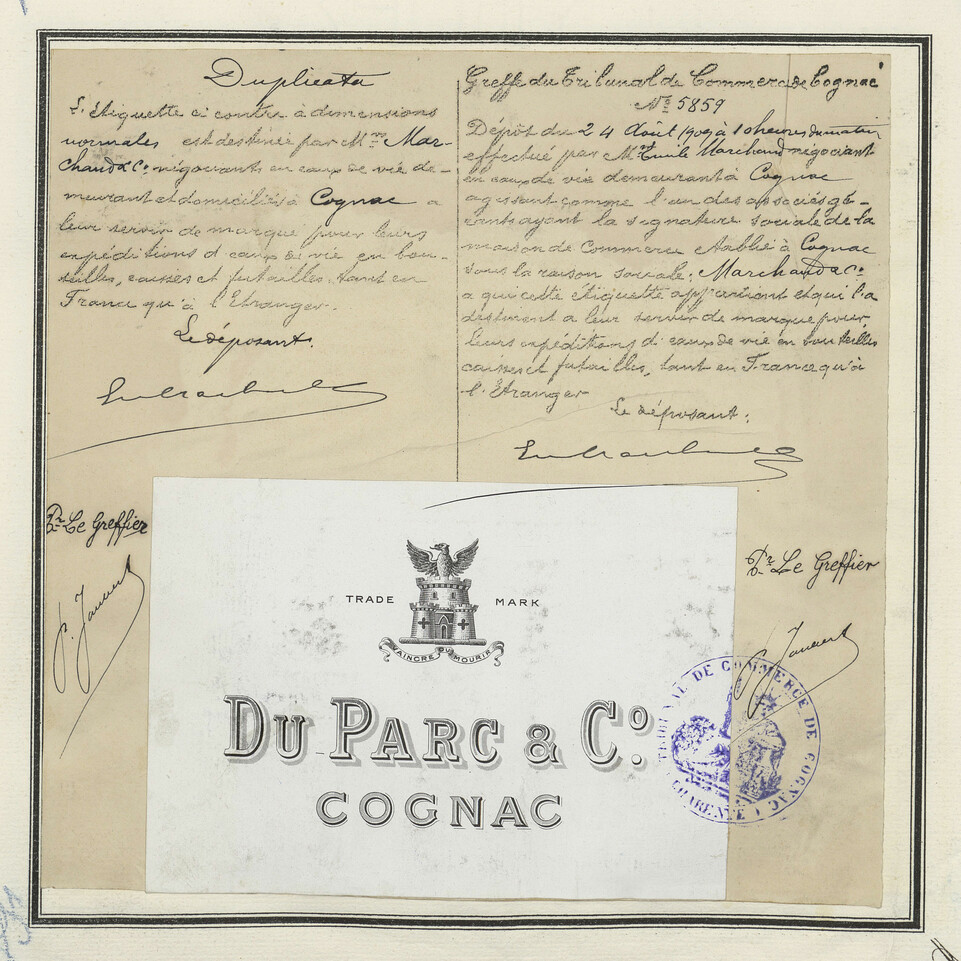 Duplicata
L'étiquette ci contre à dimensions
normales est destinée par Mrs Mar-
chand & Co. négociants en eaux de vie de-
meurant et domiciliés à Cognac a
leur servir de marque pour leurs
expéditions d'eaux de vie en bou-
teilles, caisses et futailles, tant en
France qu'à l'Etranger.
Le déposant.
Pr Le Greffier
Greffe du Tribunal de Commerce de Cognac
No 5859
Dépôt du 24 Août 1909 à 10 heures du matin
effectué par Mr Emile Marchand négociant
en eaux de vie demeurant à Cognac
agissant comme l'un des associés gé-
rants ayant la signature sociale de la
maison de Commerce établie à Cognac
sous la raison sociale: Marchand & Co.
a qui cette étiquette appartient et qui l'a
destinent a leur servir de marque pour
leurs expéditions d'eaux de vie en bouteilles
caisses et futailles, tant en France qu'à
l'Etranger
Le déposant.
Pr Le Greffier
TRADE MARK
VAINCRE OU MOURIR
DU PARC & Co.
COGNAC
TRIBUNAL DE COMMERCE DE COGNAC
CHARENTE